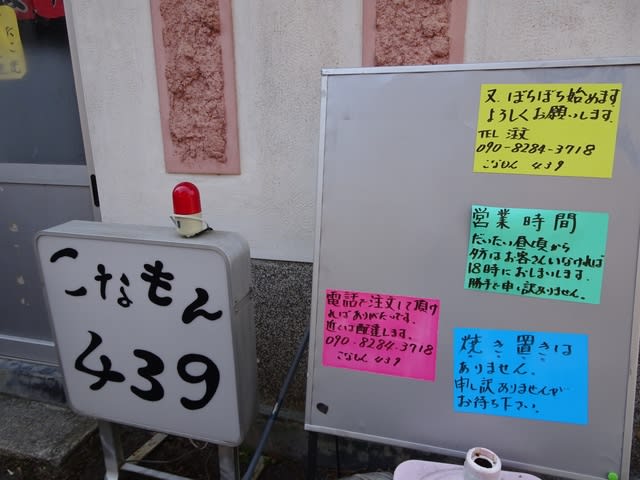 こなもん
439
又、ぼちぼち始めます
よろしくお願いします。
TEL 注文
090-8284-3718
こなもん 439
営業時間
だいたい昼頃から
夕方はお客さんいなければ
18時におしまいします。
勝手で申し訳ありません。
電話で注文して頂け
ればありがたいです。
近くは配達します。
090-8284-3718
こなもん 439
焼き置きは
ありません。
申し訳ありませんが
お待ち下さい。